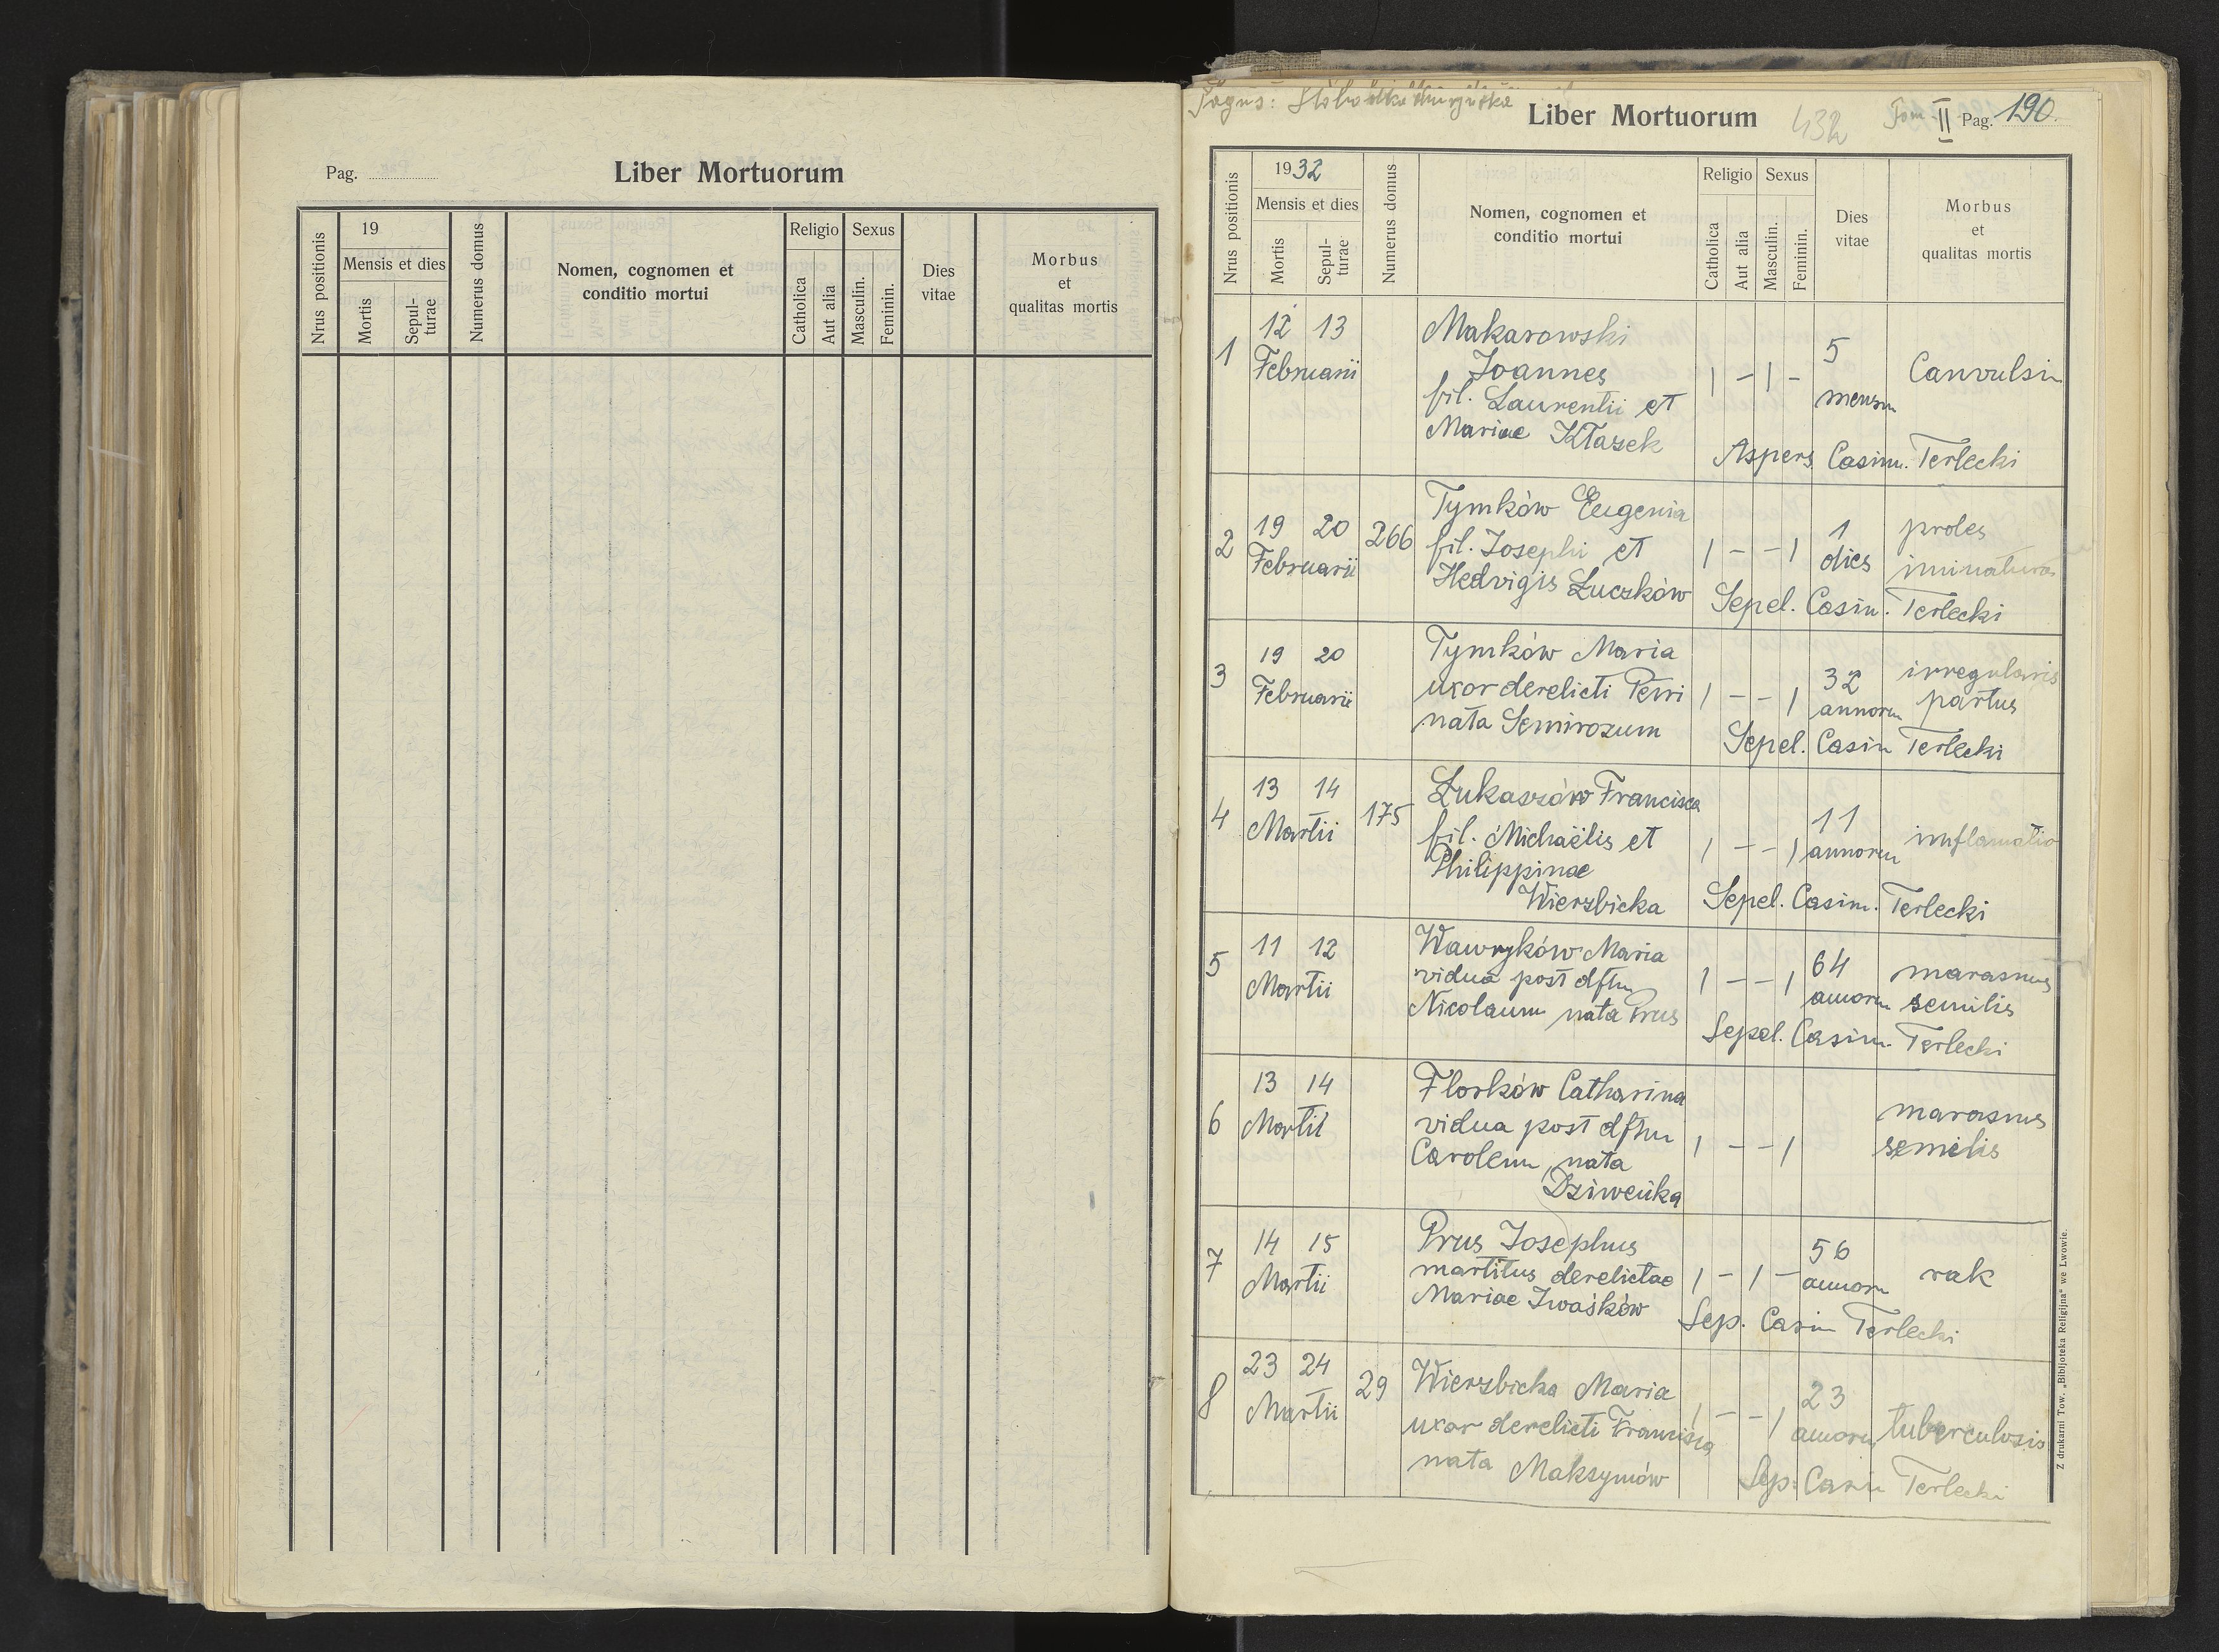 Pag.
Liber Mortuorum
Nrus positionis
19
Mensis et dies
Mortis
Sepul-
turae
Numerus domus
Nomen, cognomen et
conditio mortui
Religio
Catholica
Aut alia
Sexus
Masculin.
Feminin.
Dies
vitae
Morbus
et
qualitas mortis
Pagus:
Liber Mortuorum
432
Tom II Pag. 190.
Nrus positionis
1932
Mensis et dies
Mortis
Sepul-
turae
Numerus domus
Nomen, cognomen et
conditio mortui
Religio
Catholica
Aut alia
Sexus
Masculin.
Feminin.
Dies
vitae
Morbus
et
qualitas mortis
1
12 13
Februarii
Makarowski
Joannes
fil. Laurentii et
Mariae Kłasek
| - | -
5
mensm
Canvulsin
Aspers. Casim. Terlecki
2
19 20
Februarii
266
Tymków Eugenia
fil. Josephi et
Hedvigis Łuczków
| - - |
1
dies
proles
iminatura
Sepel. Casim. Terlecki
3
19 20
Februarii
Tymków Maria
uxor derelicti Petri
nata Semirozum
| - - |
32
annorm
irregularis
partus
Sepel. Casim Terlecki
4
13 14
Martii
175
Łukaszów Francisca
fil. Michaëlis et
Philippinae
Wierzbicka
| - - |
11
annorm
imflamatio
Sepel. Casim. Terlecki
5
11 12
Martii
Wawryków Maria
vidua post dftm
Nicolaum nata Prus
| - - |
64
annorm
marasmus
semilis
Sepel. Casim. Terlecki
6
13 14
Martii
Florków Catharina
vidua post dftm
Carolem, nata
Dziweńka
| - - |
marasmus
semilis
7
14 15
Martii
Prus Josephus
martitus derelictae
Mariae Iwaśków
| - | -
56
annorm
rak
Sep. Casim Terlecki
8
23 24
Martii
29
Wierzbicka Maria
uxor derelicti Francisca
nata Maksymów
| - - |
23
annorm
tuberculosis
Sep. Casim Terlecki
Z drukarni Tow. „Bibljoteka Religijna" we Lwowie.